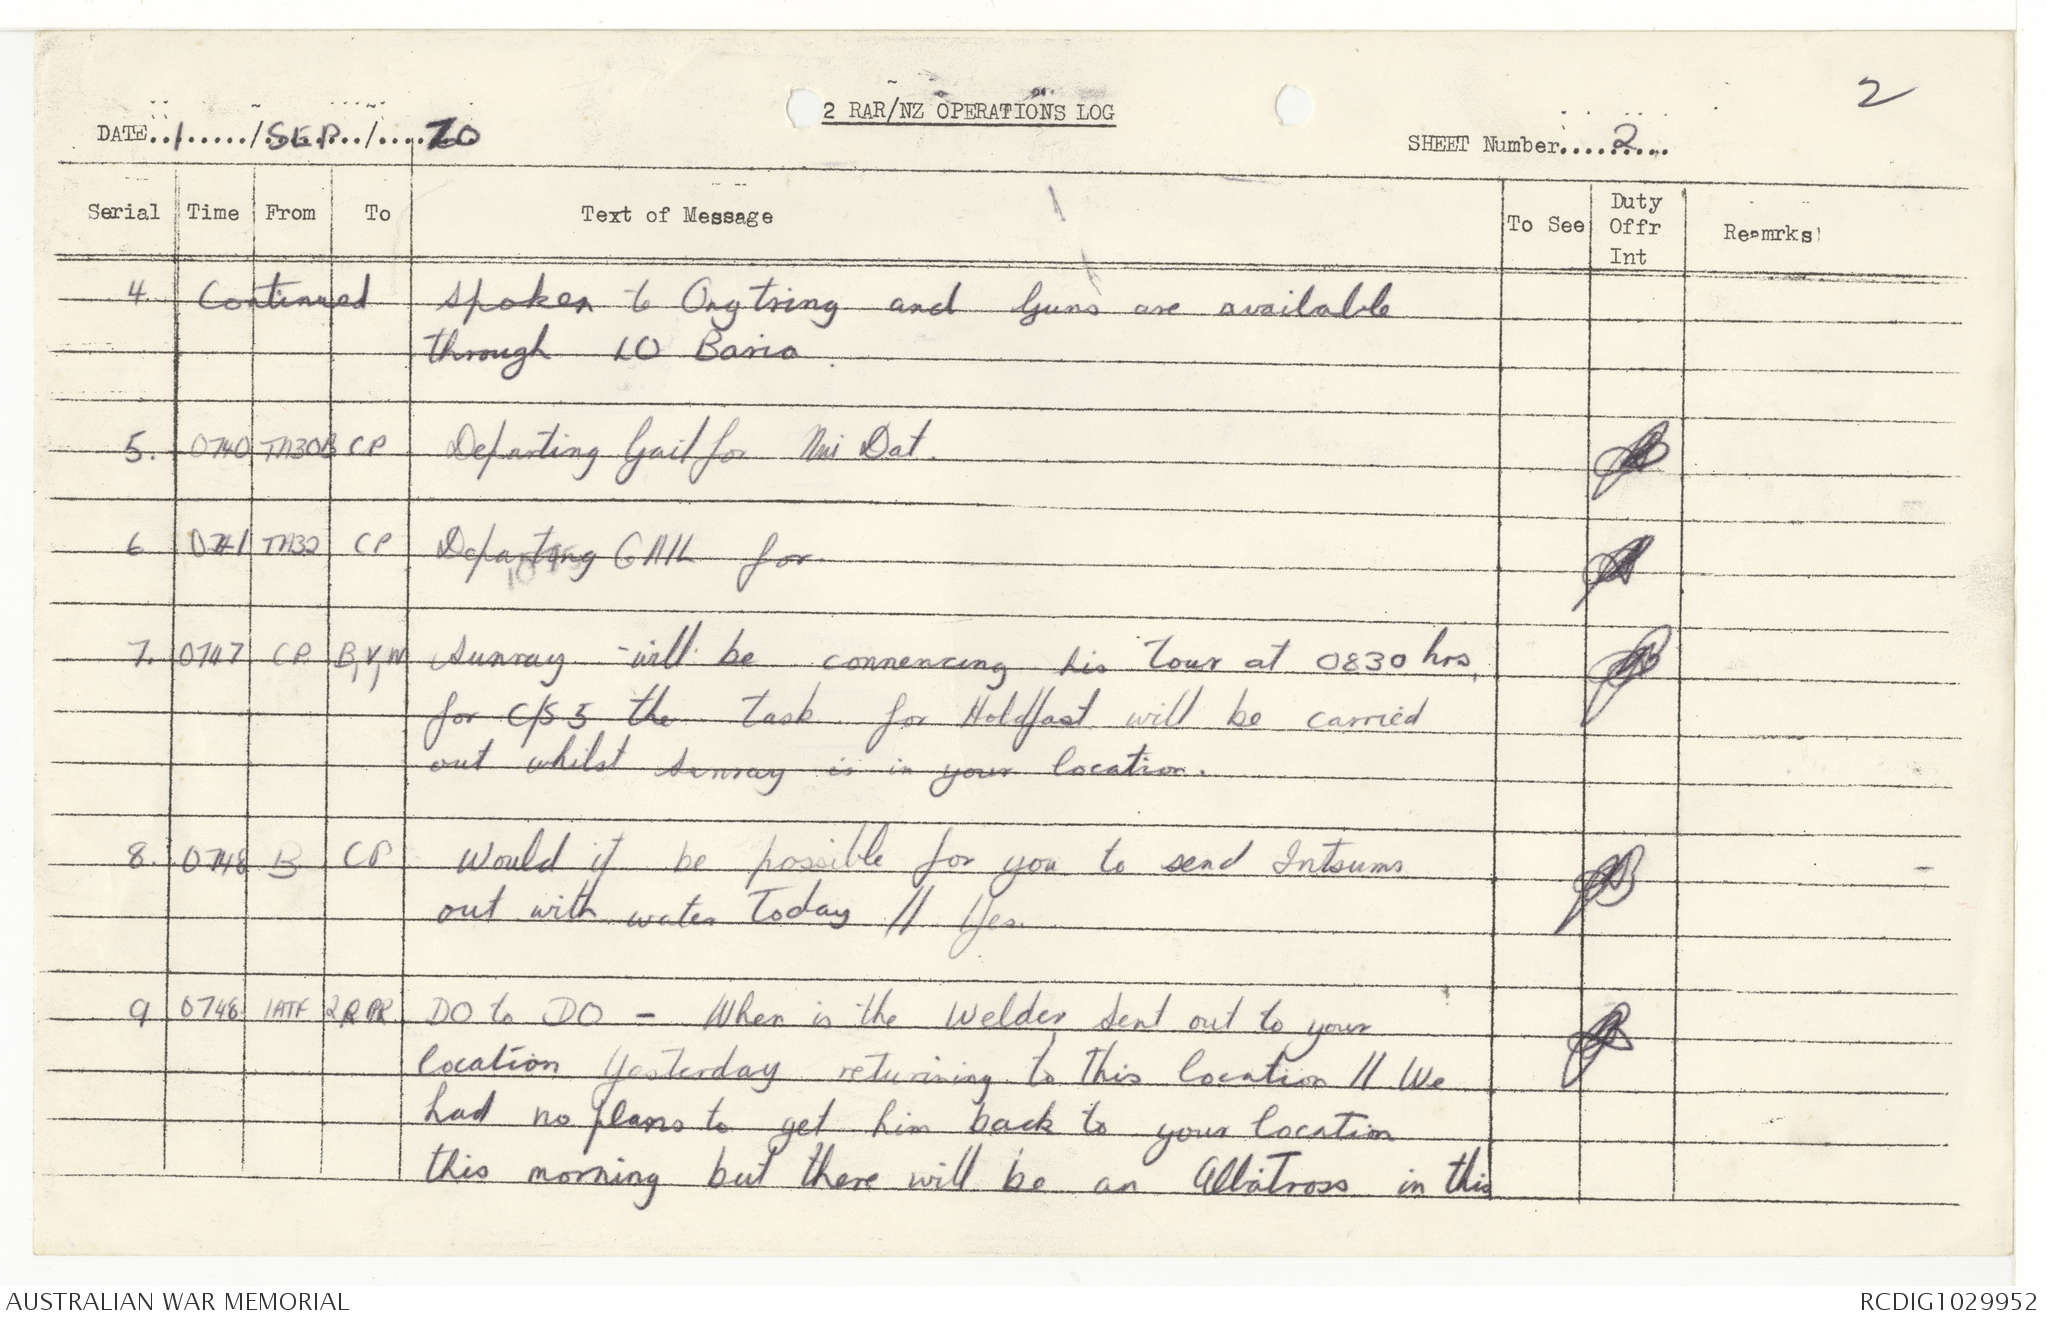 2
2 RAR/NZ OPERATIONS LOG
DATE..1...../SEP../....70
SHEET Number....2....
Serial Time From To Text of Message To See Duty Offr Int Reamrks
4. Continued Spoken to and Guns are available
through LO Baria.
5. 0740 CP Departing Gail for Nui Dat.
6 0741 CP Departing GAIL for
7. 0747 CP B,V,W Sunray will be commencing his tour at 0830 hrs,
for C/S 5 the task for Holdfast will be carried
out whilst Sunray is in your location.
8. 0748 B CP Would it be possible for you to send Intsums
out with water Today // Yes.
9 0748 1ATF 2RAR DO to DO - When is the Welder sent out to your
location Yesterday returining to this location // We
had no plans to get him back to your location
this morning but there will be an Albatross in this
AUSTRALIAN WAR MEMORIAL
RCDIG1029952